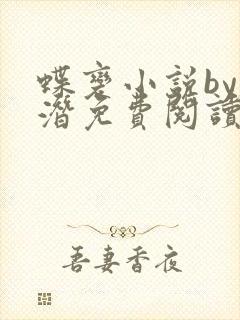 蝶变小说by
潜免費閱讀
吾妻香夜